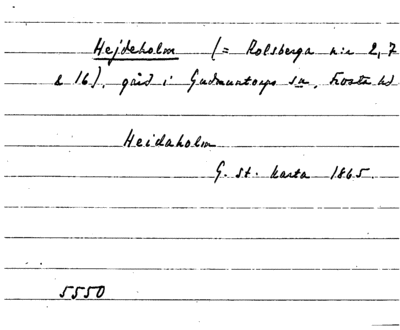 Hejdeholm (= Rolsberga n:r 2, 7
& 16), gård i Gudmuntorps sn, Frosta hd
Heidaholm
G. st. karta 1865.
5550